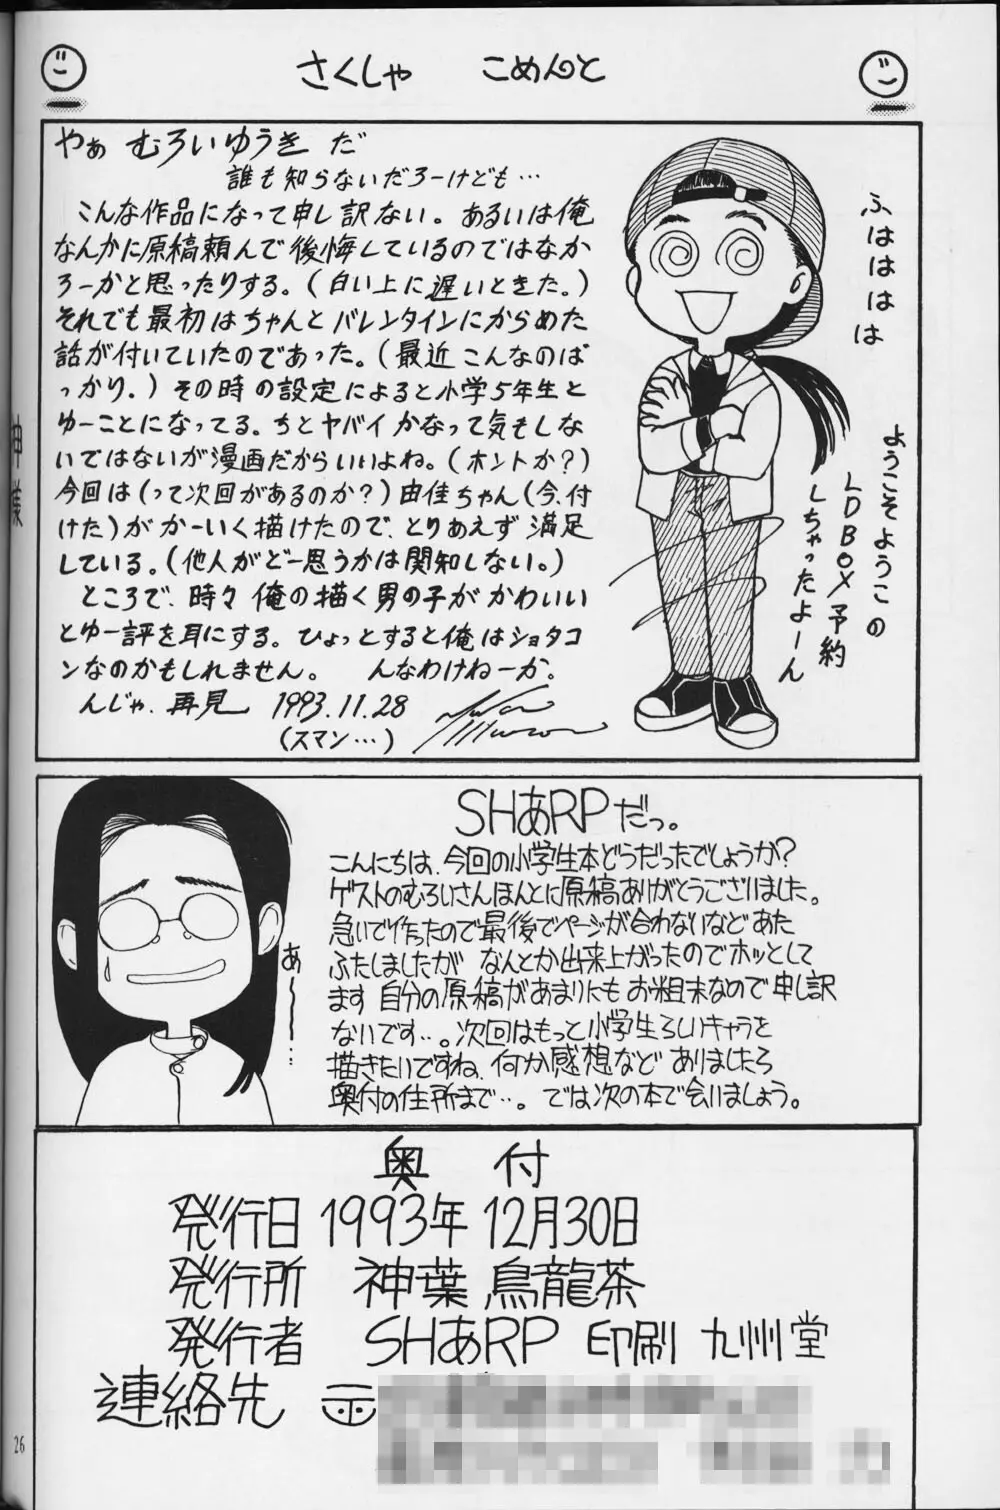 さくしゃ こめんと
やぁ むろいゆうき だ
誰も知らないだろーけども…
こんな作品になって申し訳ない。あるいは俺
なんかに原稿頼んで後悔しているのではなか
ろーかと思ったりする。(白い上に遅いときた。)
それでも最初はちゃんとバレンタインにからめた
話が付いていたのであった。(最近こんなのば
っかり.)その時の設定によると小学5年生と
ゆーことになってる。ちとヤバイかなって気もしな
いではないが漫画だからいいよね。(ホントか?)
今回は(って次回があるのか?)由佳ちゃん(今、付
けた)がかーいく描けたので、とりあえず満足
している。(他人がどー思うかは関知しない。)
ところで、時々俺の描く男の子がかわいい
とゆー評を耳にする。ひょっとすると俺はショタコ
ンなのかもしれません。 んなわけねーか.
んじゃ、再見 1993.11.28
(スマン…)
ふははは
ようこそようこの
LDBOX予約
しちゃったよーん
SHあRPだっ。
こんにちは、今回の小学生本どうだったでしょうか?
ゲストのむろいさんほんとに原稿ありがとうございました。
急いで作ったので最後でページが合わないなどあた
ふたしましたが なんとか出来上がったのでホッとして
ます 自分の原稿があまりにもお粗末なので申し訳
ないです…。次回はもっと小学生らしいキャラを
描きたいですね、何か感想など ありましたら
奥付の住所まで…。では次の本で会いましょう。
あ〜…
奥付
発行日 1993年 12月30日
発行所 神葉 烏龍茶
発行者 SHあRP 印刷 九州堂
連絡先 〒
26